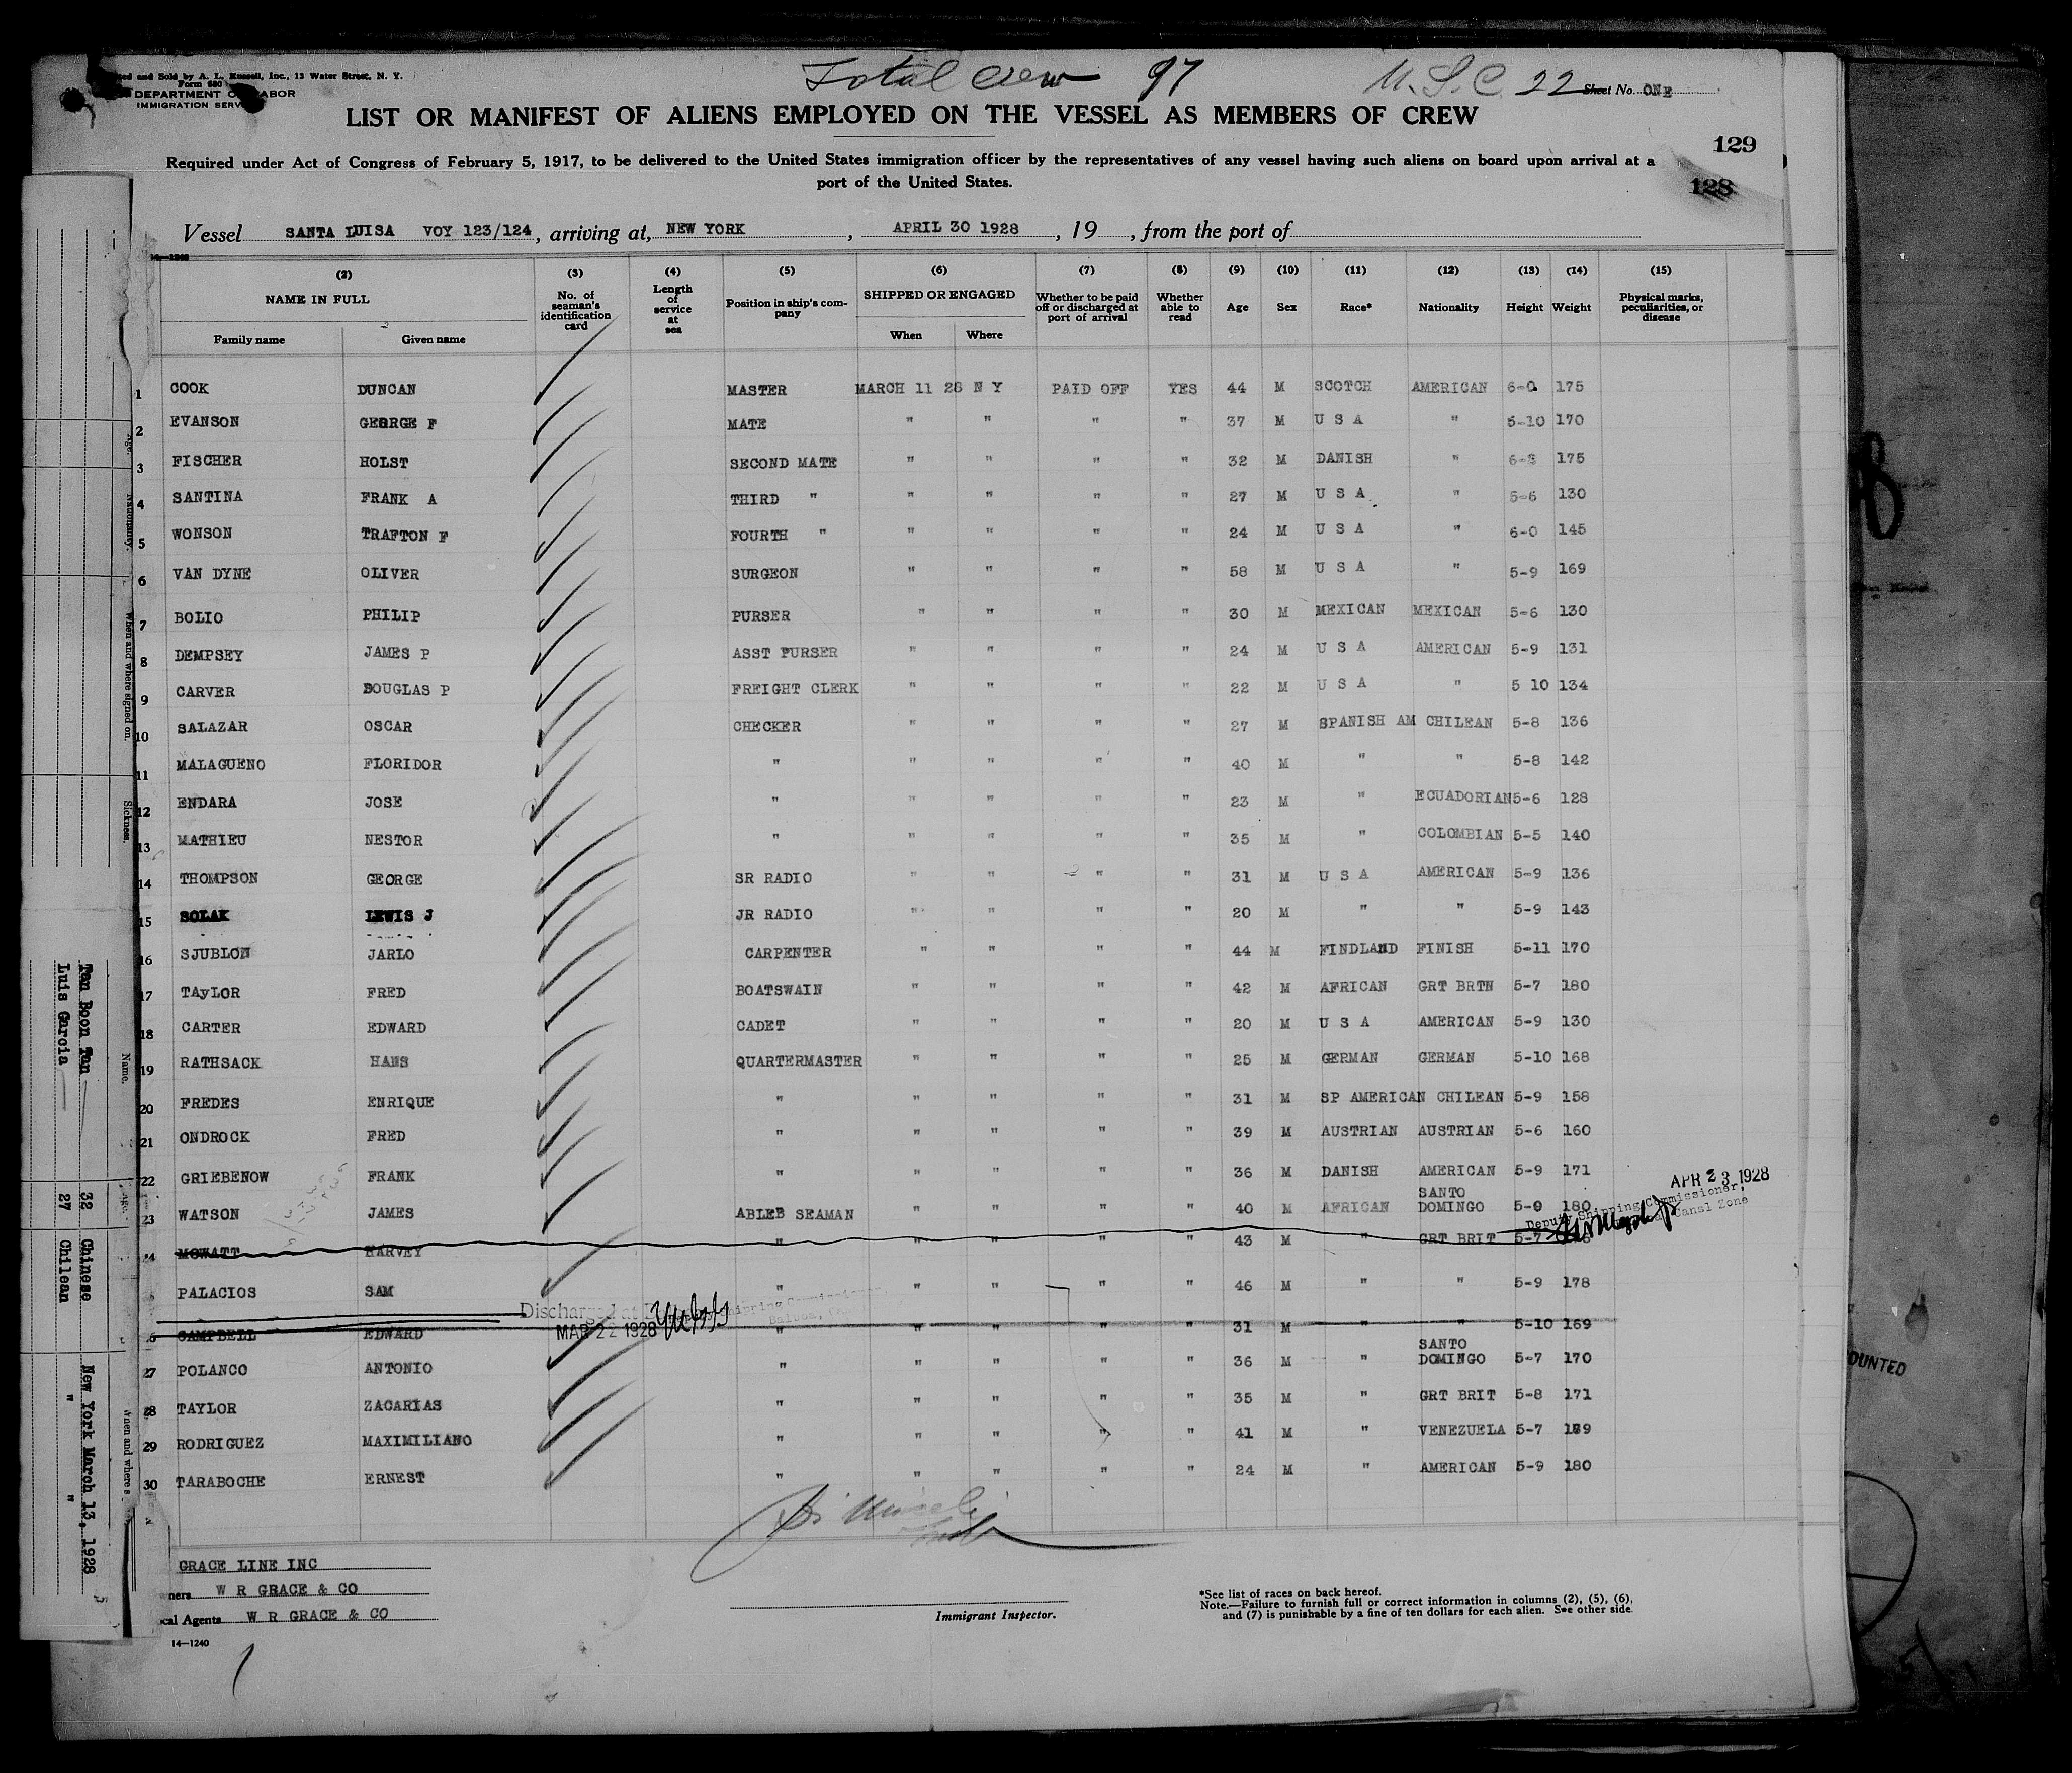 Total Crew 97 U.S.C. 22
ted and Sold by A. L. Russell, Inc., 13 Water Street, N. Y.
Form 680
DEPARTMENT OF LABOR
IMMIGRATION SERV
Sheet No. ONE
LIST OR MANIFEST OF ALIENS EMPLOYED ON THE VESSEL AS MEMBERS OF CREW
129
Required under Act of Congress of February 5, 1917, to be delivered to the United States immigration officer by the representatives of any vessel having such aliens on board upon arrival at a
port of the United States.
128
Vessel SANTA LUISA VOY 123/124, arriving at, NEW YORK, APRIL 30 1928, 19 , from the port of
14—1240
(2) (3) (4) (5) (6) (7) (8) (9) (10) (11) (12) (13) (14) (15)
NAME IN FULL No. of seaman's identification card Length of service at sea Position in ship's company SHIPPED OR ENGAGED Whether to be paid off or discharged at port of arrival Whether able to read Age Sex Race* Nationality Height Weight Physical marks, peculiarities, or disease
Family name Given name When Where
1 COOK DUNCAN MASTER MARCH 11 28 N Y PAID OFF YES 44 M SCOTCH AMERICAN 6-0 175
2 EVANSON GEORGE F MATE " " " " 37 M U S A " 5-10 170
3 FISCHER HOLST SECOND MATE " " " " 32 M DANISH " 175
4 SANTINA FRANK A THIRD " " " " " 27 M U S A " 5-6 130
5 WONSON TRAFTON F FOURTH " " " " " 24 M U S A " 6-0 145
6 VAN DYNE OLIVER SURGEON " " " " 58 M U S A " 5-9 169
7 BOLIO PHILIP PURSER " " " " 30 M MEXICAN MEXICAN 5-6 130
8 DEMPSEY JAMES P ASST PURSER " " " " 24 M U S A AMERICAN 5-9 131
9 CARVER DOUGLAS P FREIGHT CLERK " " " " 22 M U S A " 5 10 134
10 SALAZAR OSCAR CHECKER " " " " 27 M SPANISH AM CHILEAN 5-8 136
11 MALAGUENO FLORIDOR " " " " " 40 M " " 5-8 142
12 ENDARA JOSE " " " " " 23 M " ECUADORIAN 5-6 128
13 MATHIEU NESTOR " " " " " 35 M " COLOMBIAN 5-5 140
14 THOMPSON GEORGE SR RADIO " " " " 31 M U S A AMERICAN 5-9 136
15 SOLAK LEWIS J JR RADIO " " " " 20 M " " 5-9 143
16 SJUBLON JARLO CARPENTER " " " " 44 M FINDLAND FINISH 5-11 170
17 TAyLOR FRED BOATSWAIN " " " " 42 M AFRICAN GRT BRTN 5-7 180
18 CARTER EDWARD CADET " " " " 20 M U S A AMERICAN 5-9 130
19 RATHSACK HANS QUARTERMASTER " " " " 25 M GERMAN GERMAN 5-10 168
20 FREDES ENRIQUE " " " " " 31 M SP AMERICAN CHILEAN 5-9 158
21 ONDROCK FRED " " " " " 39 M AUSTRIAN AUSTRIAN 5-6 160
22 GRIEBENOW FRANK " " " " " 36 M DANISH AMERICAN 5-9 171
APR 23 1928
23 WATSON JAMES ABLEB SEAMAN " " " " 40 M AFRICAN SANTO DOMINGO 5-9 180
Deputy Shipping Commissioner,
Canal Zone
24 MOWATT HARVEY " " " " " 43 M " GRT BRIT 5-7
PALACIOS SAM " " " " " 46 M " " 5-9 178
Discharged at
Shipping Commissioner
Balboa,
MAR 22 1928
26 CAMPBELL EDWARD " " " " " 31 M " " 5-10 169
27 POLANCO ANTONIO " " " " " 36 M " SANTO DOMINGO 5-7 170
28 TAYLOR ZACARIAS " " " " " 35 M " GRT BRIT 5-8 171
29 RODRIGUEZ MAXIMILIANO " " " " " 41 M " VENEZUELA 5-7
30 TARABOCHE ERNEST " " " " " 24 M " AMERICAN 5-9 180
GRACE LINE INC
ners W R GRACE & CO
cal Agents W R GRACE & CO
14—1240
Immigrant Inspector.
*See list of races on back hereof.
Note.—Failure to furnish full or correct information in columns (2), (5), (6),
and (7) is punishable by a fine of ten dollars for each alien. See other side.
Age. Nationality. When and where signed on. Sickness.
Name. Age. When and where s
Tan Boon Tan 32 Chinese New York March 13, 1928
Luis Garcia 27 Chilean " "
OUNTED